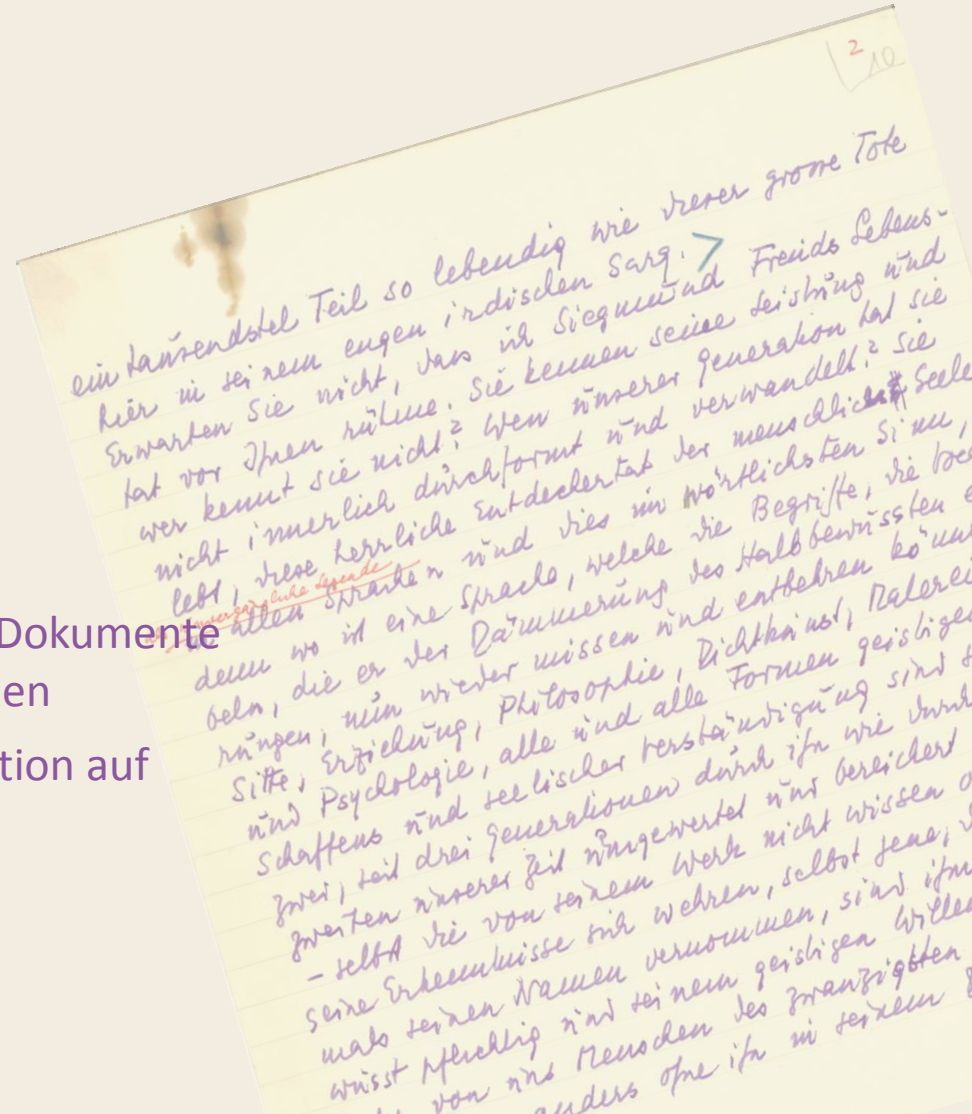 2
10
ein tausendstel Teil so lebendig wie dieser grosse Tote
hier in seinem engen irdischen Sarg. >
Erwarten Sie nicht, dass ich Siegmund Freuds Lebens-
tat vor Ihnen rühme. Sie kennen seine Leistung und
wer kennt sie nicht? Wen unserer Generation hat sie
nicht innerlich durchformt und verwandelt? Sie
lebt, diese herrliche Entdeckertat der menschlichen Seele
als unvergängliche Legende
in allen Sprachen und dies im wörtlichsten Sinn,
denn wo ist eine Sprache, welche die Begriffe, die
beln, die er der Dämmerung des Halbbewussten
rungen, nun wieder missen und entbehren
Sitte, Erziehung, Philosophie, Dichtkunst, Malerei
und Psychologie, alle und alle Formen geistigen
Schaffens und seelischer Verständigung sind
zwei, seit drei Generationen durch ihn wie durch
zweiten unserer Zeit umgewertet und bereichert
– selbst die von seinem Werk nicht wissen
seine Erkenntnisse sich wehren, selbst jene,
mals seinen Namen vernommen, sind ihm
wusst pflichtig und seinem geistigen Willen
von uns Menschen des zwanzigsten
anders ohne ihn in seinem
Dokumente
en
tion auf